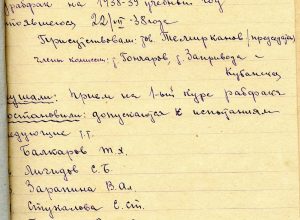 рабфак на 1938-39 учебный год
состоявшегося 22/VIII-38 года
Присутствовали: тов Темирканов /председат/
члены комисс: т. Гончаров, т. Заприводa и
Кубанска
Слушали: Прием на 1-ый курс рабфака
Постановили: допускаются к испытаниям
следующие т.т.
Балкаров Т.Х.
Лигидов С.Б.
Зарапина В.Ал.
Стукалова Е.Ст.